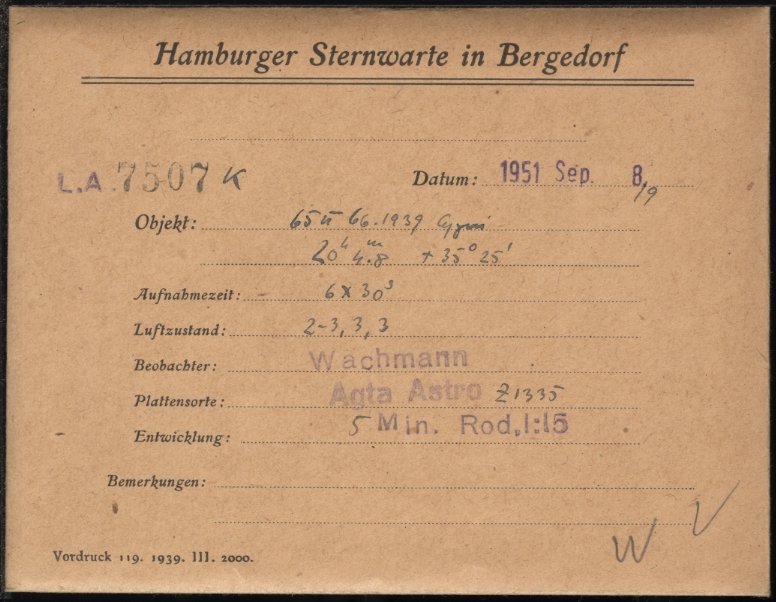 Hamburger Sternwarte in Bergedorf
L.A. 7507 K Datum: 1951 Sep. 8/9
Objekt: 65 u 66.1939 Cygni
20h 4m.8 + 35° 25'
Aufnahmezeit: 6 x 30s
Luftzustand: 2-3, 3, 3
Beobachter: Wachmann
Plattensorte: Agta Astro Z1335
Entwicklung: 5 Min. Rod, 1:15
Bemerkungen:
W V
Vordruck 119. 1939. III. 2000.